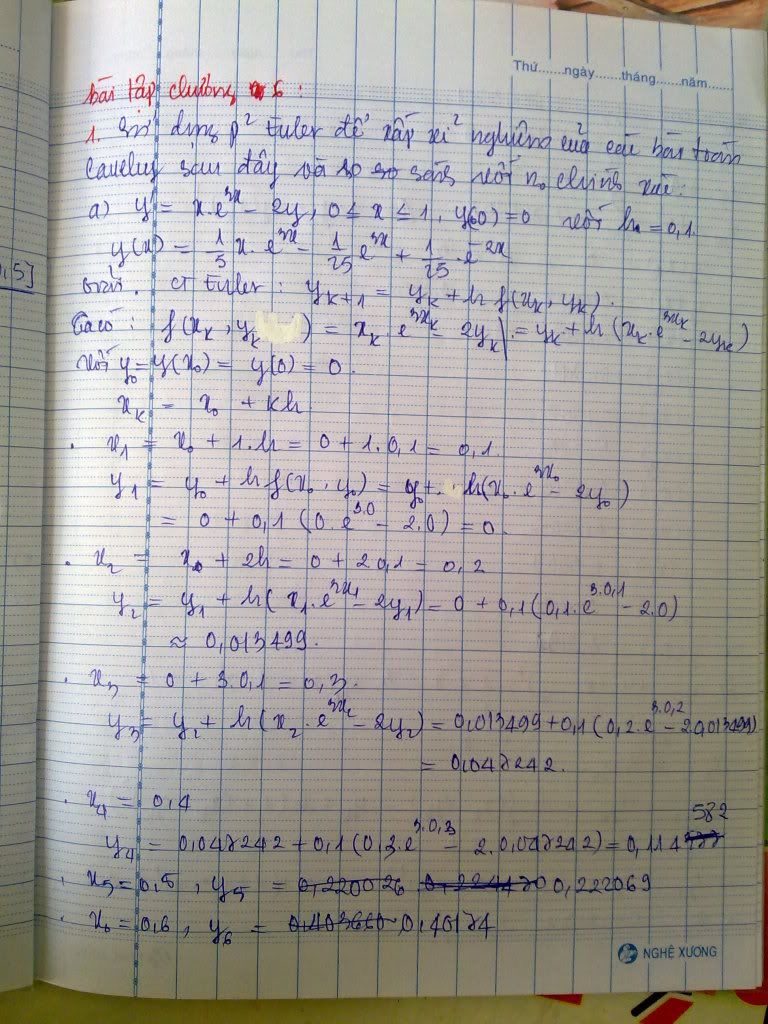 Thứ.......ngày.......tháng.......năm.......
bài tập chương 6 :
1. Sử dụng p² Euler để xấp xỉ² nghiệm của các bài toán
Cauchy sau đây và so so sánh với n₀ chính xác:
a) y' = x.e^{3x} - 2y, 0 ≤ x ≤ 1, y(0) = 0 với h = 0,1
y(x) = 1/5 x. e^{3x} - 1/25 e^{3x} + 1/25 . e^{-2x}
0,5]
CT Euler : y_{k+1} = y_k + h f(x_k, y_k).
Ta có : f(x_k, y_k) = x_k e^{3x_k} - 2y_k = y_k + h (x_k.e^{3x_k} - 2y_k)
với y₀ = y(x₀) = y(0) = 0.
x_k = x₀ + kh
. x₁ = x₀ + 1.h = 0 + 1.0,1 = 0,1.
y₁ = y₀ + h f(x₀, y₀) = y₀ + h(x₀.e^{3x₀} - 2y₀)
= 0 + 0,1 (0.e^{3.0} - 2.0) = 0.
. x₂ = x₀ + 2h = 0 + 2 0,1 = 0,2
y₂ = y₁ + h( x₁.e^{3x₁} - 2y₁) = 0 + 0,1 (0,1.e^{3.0,1} - 2.0)
≈ 0,013499.
. x₃ = 0 + 3.0,1 = 0,3.
y₃ = y₂ + h( x₂.e^{3x₂} - 2y₂) = 0,013499 + 0,1 (0,2.e^{3.0,2} - 2.0,013499)
= 0,047242.
. x₄ = 0,4
582
y₄ = 0,047242 + 0,1 (0,3.e^{3.0,3} - 2.0,047242) = 0,114
. x₅ = 0,5 , y₅ = 0,220026 0,222069
. x₆ = 0,6 , y₆ = 0,403660 0,40174
NGHÊ XƯƠNG